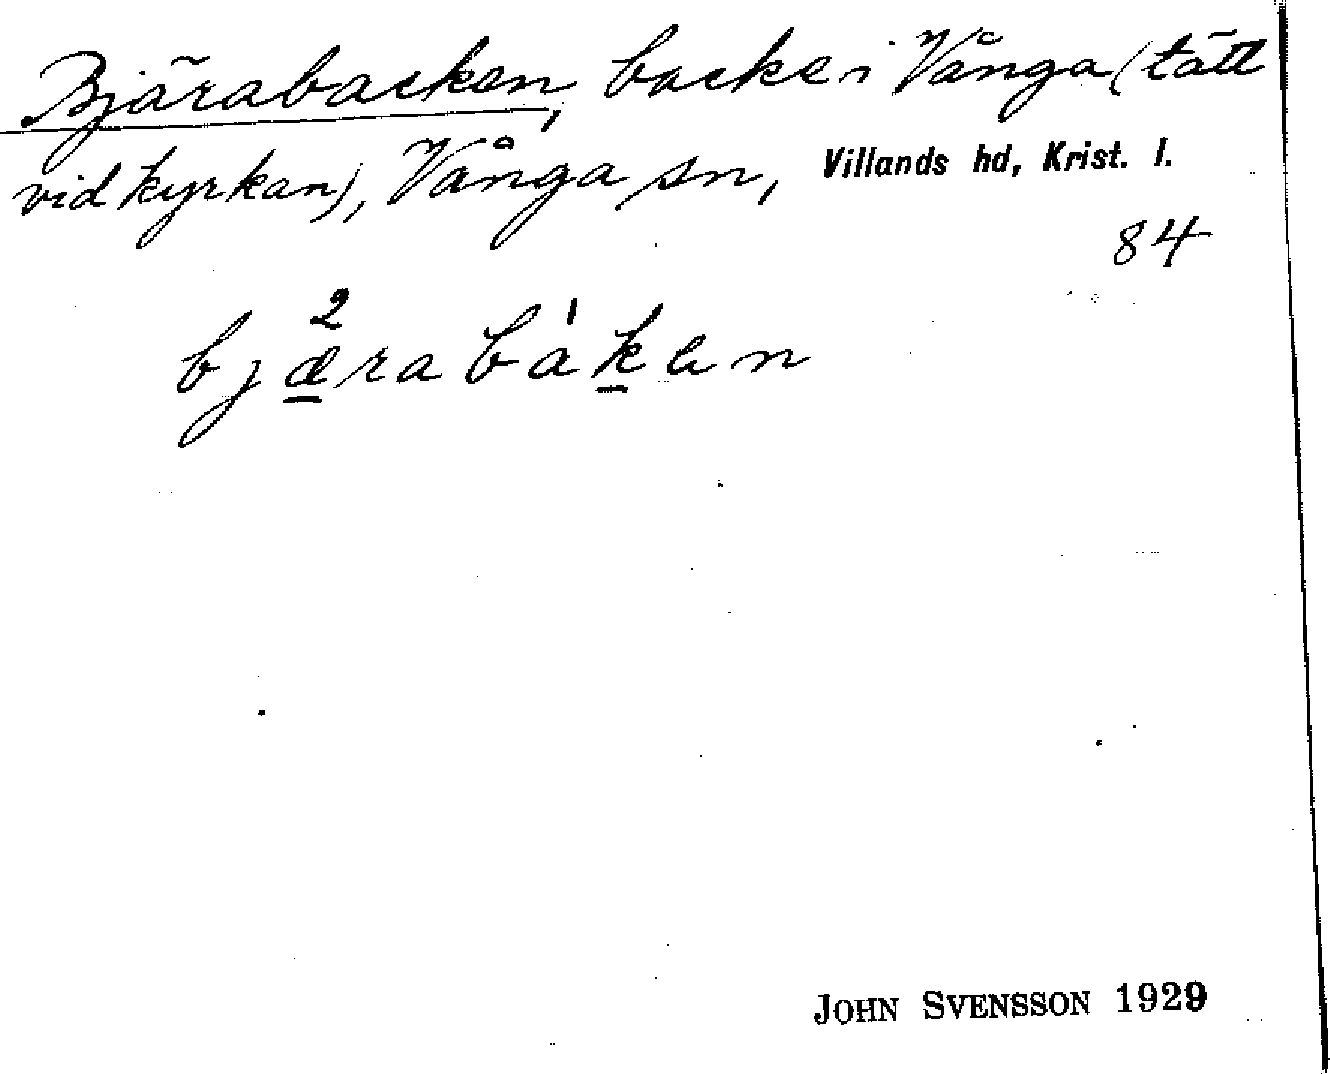 Bjärabacken, backe i Vånga (tätt
vid kyrkan), Vånga sn, Villands hd, Krist. l.
84
bjæ̲²raba¹k̲en
JOHN SVENSSON 1929